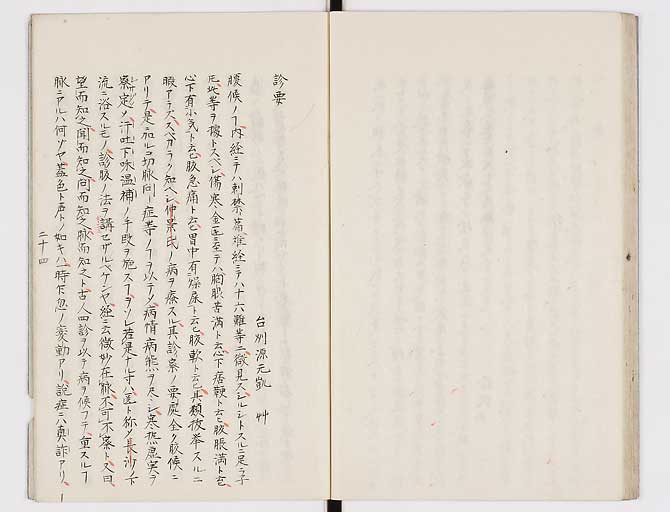 診要
台州源元凱 艸
腹候ノ丁内経ニテハ刺禁篇難経ニテハ十六難等ニ微見スレルシトスルニ足ラ子
𪜈此等ヲ據トスベシ傷寒金匱ニ至テハ胸脹苦満ト云心下痞鞕ト云腹脹満ト云
心下有水気ト云腹急痛ト云胃中有燥屎ト云腹軟ト云其類枚挙スルニ
暇アラズスベカラク知ベシ仲景氏ノ病ヲ療スル其診察ノ要処全ク腹候ニ
アリテ是ニ加ルニ切脉問症等ノ丁ヲ以テシ病情病態ヲ尽シ寒熱虚実ヲ
察定シ汗吐下味温補ノ手段ヲ施ス丁ヲソレ若是ナル寸ハ医ト称シ長沙ノ下
流ニ浴スルモノ診腹ノ法ヲ講セザルベケンヤ経ニ云微妙在脉不可不察ト又曰
望而知之聞而知之問而知之脉而知之ト古人四診ヲ以テ病ヲ候フテ重スル丁
脉ニアルハ何ゾヤ蓋色ト声トノ如キハ一時下忽ノ変動アリ説症ニハ真詐アリ
二十四